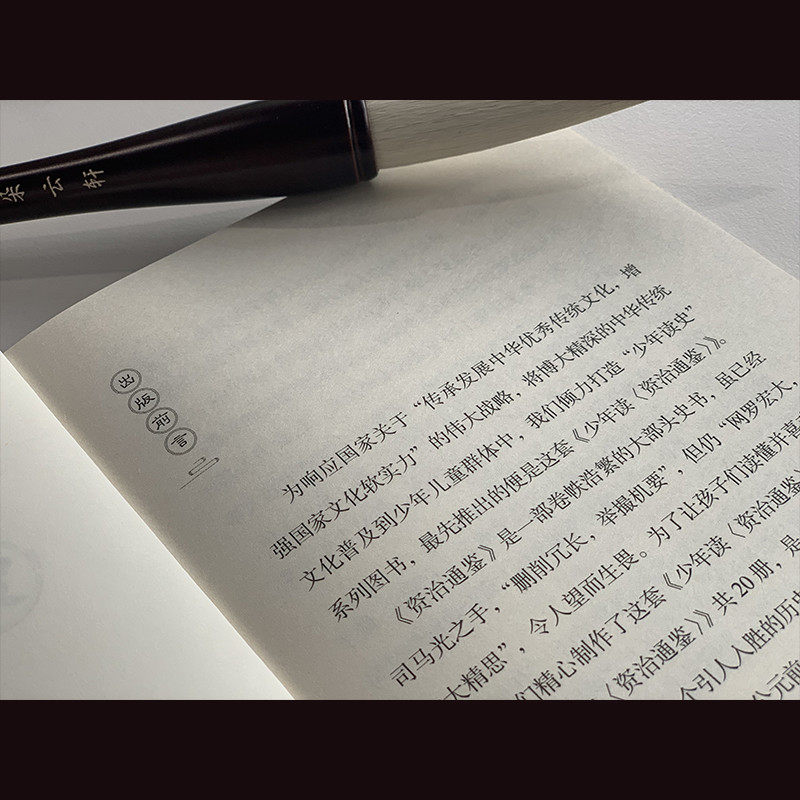 朵云轩
出版前言
为响应国家关于“传承发展中华优秀传统文化，增
强国家文化软实力”的伟大战略，将博大精深的中华传统
文化普及到少年儿童群体中，我们倾力打造“少年读史”
系列图书，最先推出的便是这套《少年读〈资治通鉴〉》。
《资治通鉴》是一部卷帙浩繁的大部头史书，虽已经
司马光之手，“删削冗长，举撮机要”，但仍“网罗宏大，
大精思”，令人望而生畏。为了让孩子们读懂并喜
们精心制作了这套《少年读〈资治通鉴〉
〈资治通鉴〉》共20册，是
个引人入胜的历史
公元前